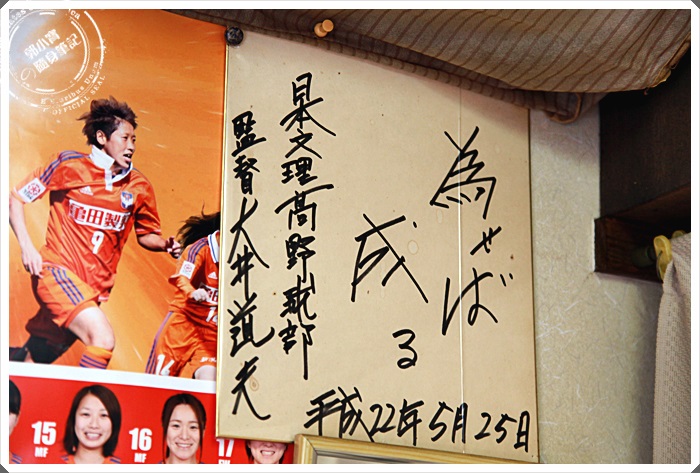 為せば
成る
日本文理高野球部
監督大井道夫
平成22年5月25日
鄒小寶
の隨身筆記
OFFICIAL SEAL
亀田製菓
9
16
15
MF
16
MF
17